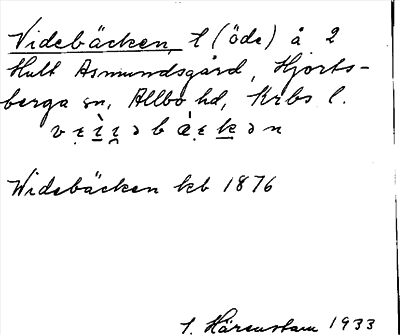 Videbäcken, t (öde) å 2
Hult Asmundsgård, Hjorts-
berga sn, Allbo hd, Krbs l.
Widebäcken kb 1876
1933